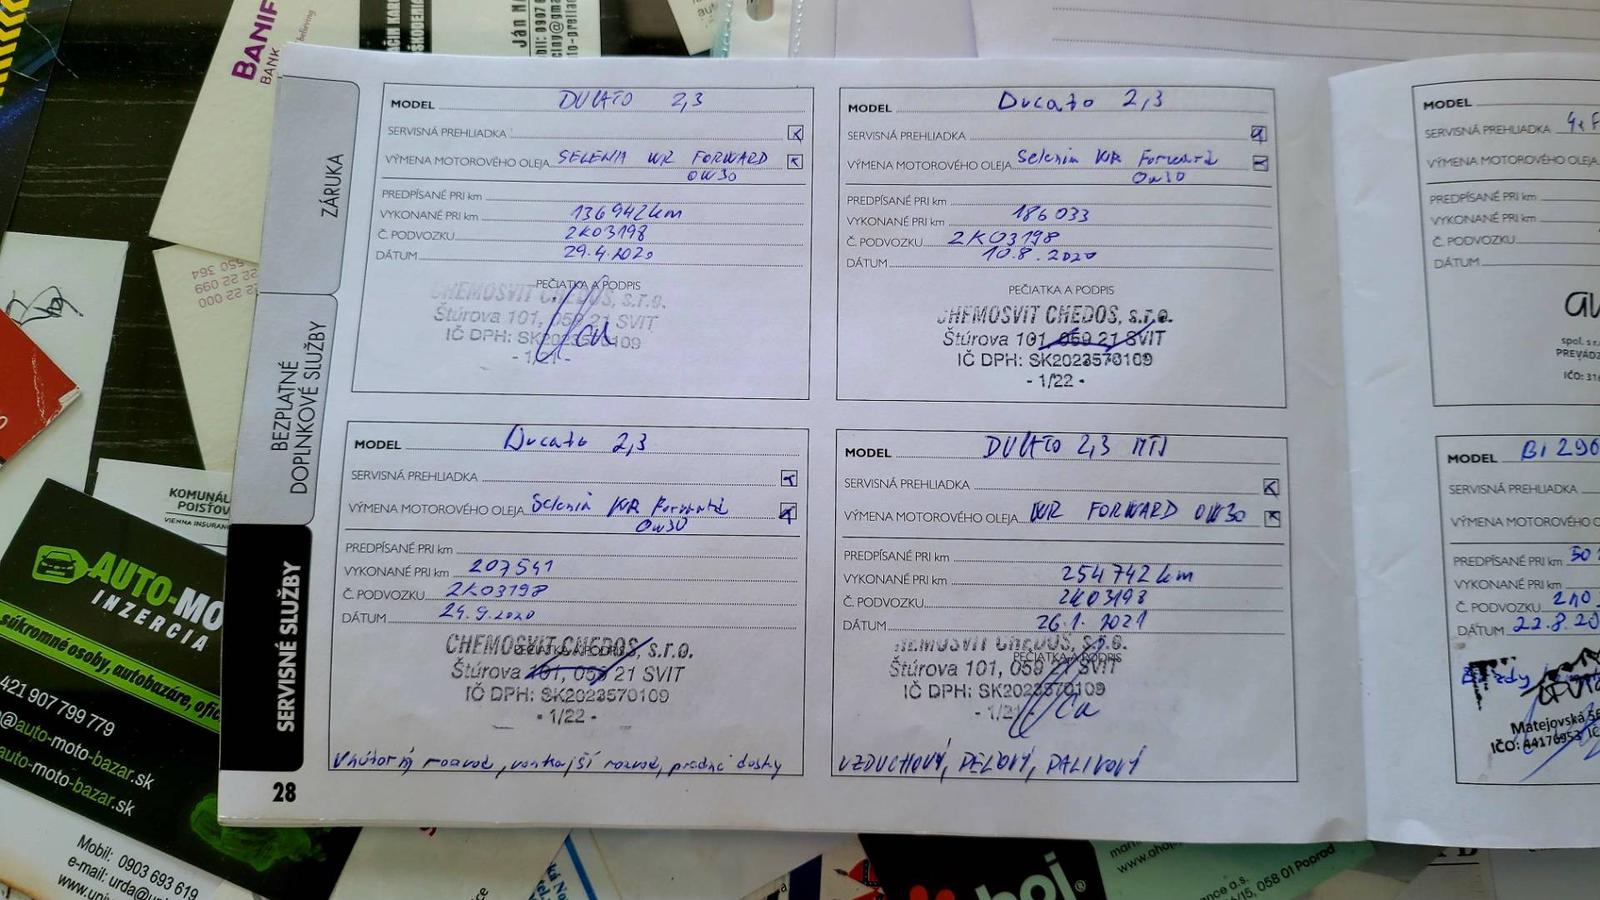 BANIF
BANK
believing
Ján
ZÁRUKA
BEZPLATNÉ
DOPLNKOVÉ SLUŽBY
SERVISNÉ SLUŽBY
28
MODEL DUCATO 2,3
SERVISNÁ PREHLIADKA
VÝMENA MOTOROVÉHO OLEJA SELENIA WR FORWARD
0W30
PREDPÍSANÉ PRI km
VYKONANÉ PRI km 136942 km
Č. PODVOZKU 2K03198
DÁTUM 29.4.2020
PEČIATKA A PODPIS
CHEMOSVIT CHEDOS, s.r.o.
Štúrova 101, 059 21 SVIT
IČ DPH: SK2023570109
MODEL Ducato 2,3
SERVISNÁ PREHLIADKA
VÝMENA MOTOROVÉHO OLEJA Selenia WR Forward
0w30
PREDPÍSANÉ PRI km
VYKONANÉ PRI km 186 033
Č. PODVOZKU 2K03198
DÁTUM 10.8.2020
PEČIATKA A PODPIS
CHEMOSVIT CHEDOS, s.r.o.
Štúrova 101, 059 21 SVIT
IČ DPH: SK2023570109
- 1/22 -
MODEL Ducato 2,3
SERVISNÁ PREHLIADKA
VÝMENA MOTOROVÉHO OLEJA Selenia WR Forward
0w30
PREDPÍSANÉ PRI km
VYKONANÉ PRI km 207541
Č. PODVOZKU 2K03198
DÁTUM 24.9.2020
PEČIATKA A PODPIS
CHEMOSVIT CHEDOS, s.r.o.
Štúrova 101, 059 21 SVIT
IČ DPH: SK2023570109
- 1/22 -
Vnútorný rozvod, vonkajší rozvod, predné dosky
MODEL DUCATO 2,3 MTJ
SERVISNÁ PREHLIADKA
VÝMENA MOTOROVÉHO OLEJA WR FORWARD 0W30
PREDPÍSANÉ PRI km
VYKONANÉ PRI km 254 742 km
Č. PODVOZKU 2K03198
DÁTUM 26.1.2021
PEČIATKA A PODPIS
CHEMOSVIT CHEDOS, s.r.o.
Štúrova 101, 059 21 SVIT
IČ DPH: SK2023570109
VZDUCHOVÝ, PEĽOVÝ, PALIVOVÝ
MODEL
SERVISNÁ PREHLIADKA
VÝMENA MOTOROVÉHO OLEJA
PREDPÍSANÉ PRI km
VYKONANÉ PRI km
Č. PODVOZKU
DÁTUM
spol. s r.
PREVÁDZ
IČO: 316
MODEL
SERVISNÁ PREHLIADKA
VÝMENA MOTOROVÉHO O
PREDPÍSANÉ PRI km
VYKONANÉ PRI km
Č. PODVOZKU
DÁTUM 22.8.20
Matejovská
IČO: 44176953
KOMUNÁL
POISŤOV
VIENNA INSURAN
AUTO-MO
INZERCIA
súkromné osoby, autobazáre, ofic
421 907 799 779
@auto-moto-bazar.sk
auto-moto-bazar.sk
Mobil: 0903 693 619
e-mail: urda@u
www.univ
058 01 Poprad